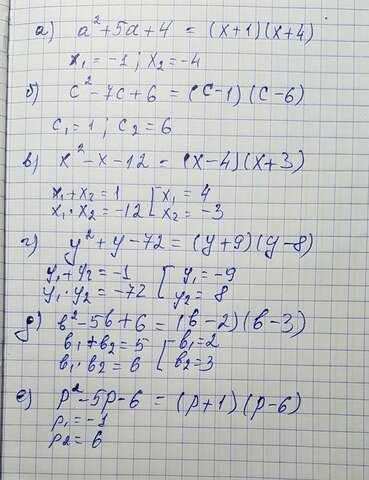 а) a² + 5a + 4 = (x+1)(x+4)
x₁ = -1 ; x₂ = -4
б) c² - 7c + 6 = (c-1)(c-6)
c₁ = 1 ; c₂ = 6
в) x² - x - 12 = (x-4)(x+3)
x₁ + x₂ = 1 [ x₁ = 4
x₁ · x₂ = -12 [ x₂ = -3
г) y² + y - 72 = (y+9)(y-8)
y₁ + y₂ = -1 [ y₁ = -9
y₁ · y₂ = -72 [ y₂ = 8
д) b² - 5b + 6 = (b-2)(b-3)
b₁ + b₂ = 5 [ b₁ = 2
b₁ · b₂ = 6 [ b₂ = 3
е) p² - 5p - 6 = (p+1)(p-6)
p₁ = -1
p₂ = 6